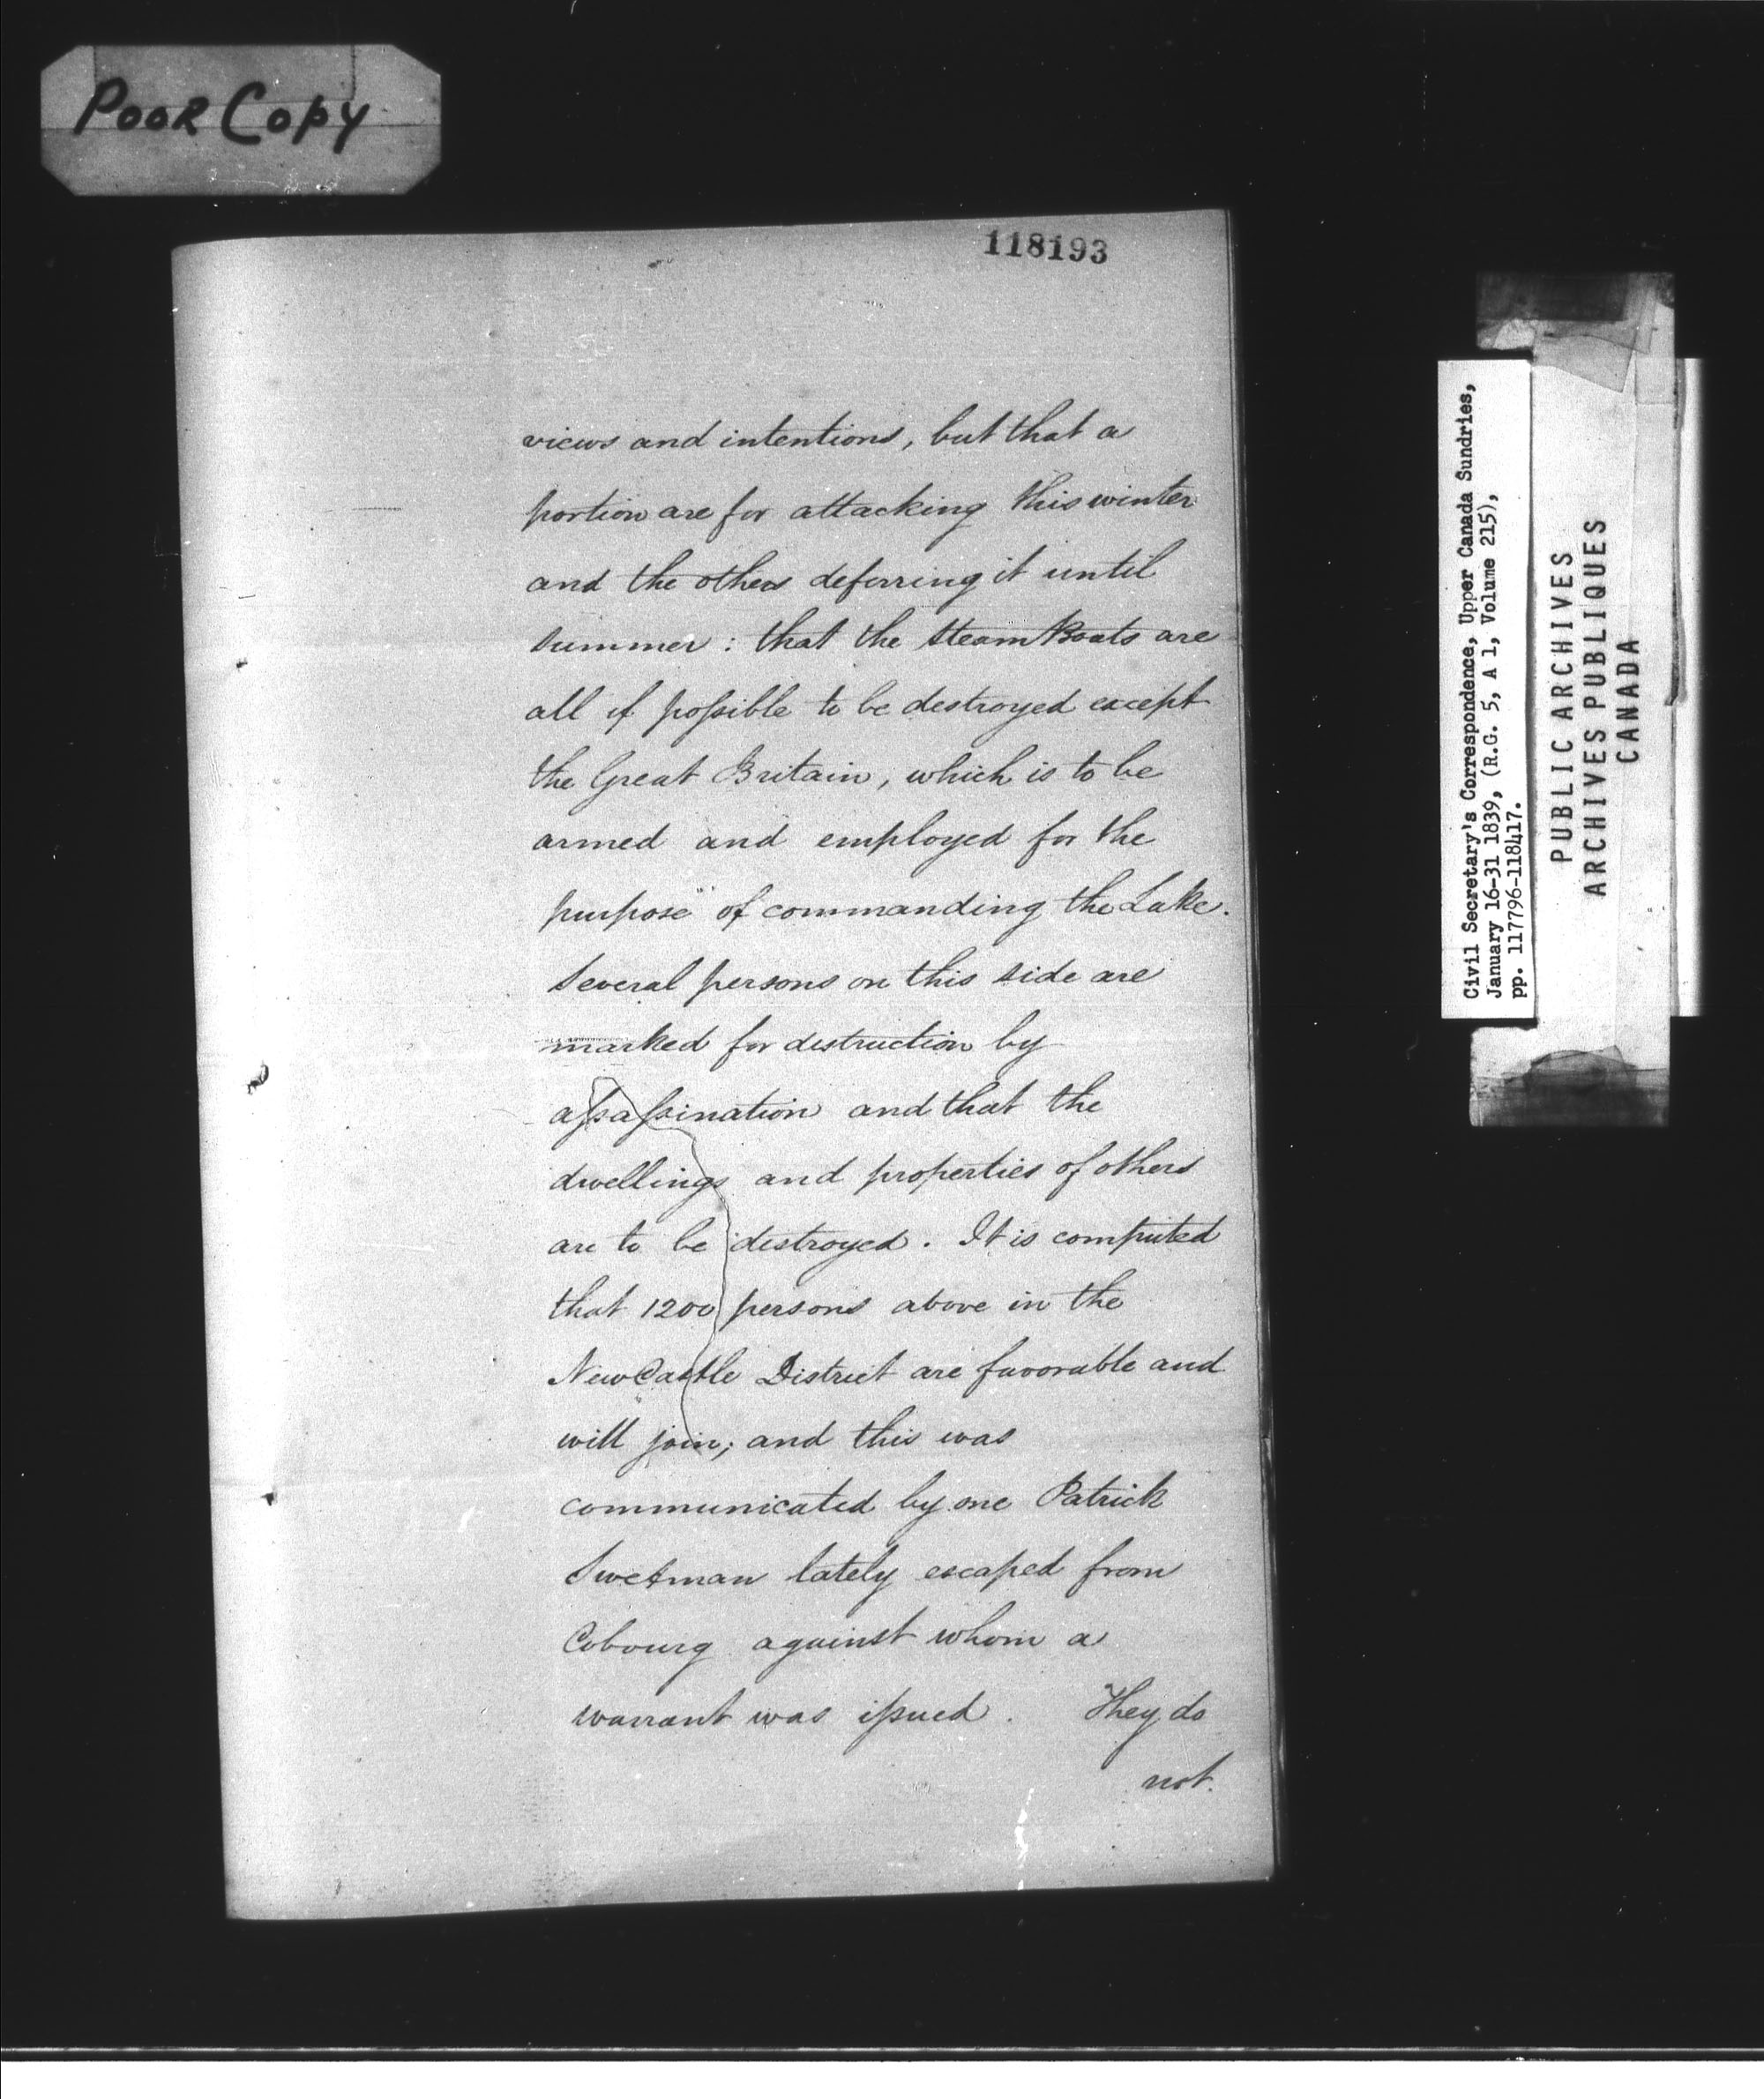 Poor Copy
118193
views and intentions, but that a
portion are for attacking this winter
and the others deferring it until
summer : that the Steam Boats are
all if possible to be destroyed except
the Great Britain, which is to be
armed and employed for the
purpose of commanding the Lake.
Several persons on this side are
marked for destruction by
assassination and that the
dwellings and properties of others
are to be destroyed. It is computed
that 1200 persons above in the
NewCastle District are favorable and
will join; and this was
communicated by one Patrick
Swetman lately escaped from
Cobourg against whom a
warrant was issued. They do
not.
Civil Secretary's Correspondence, Upper Canada Sundries,
January 16-31 1839, (R.G. 5, A 1, Volume 215),
pp. 117796-118417.
PUBLIC ARCHIVES
ARCHIVES PUBLIQUES
CANADA